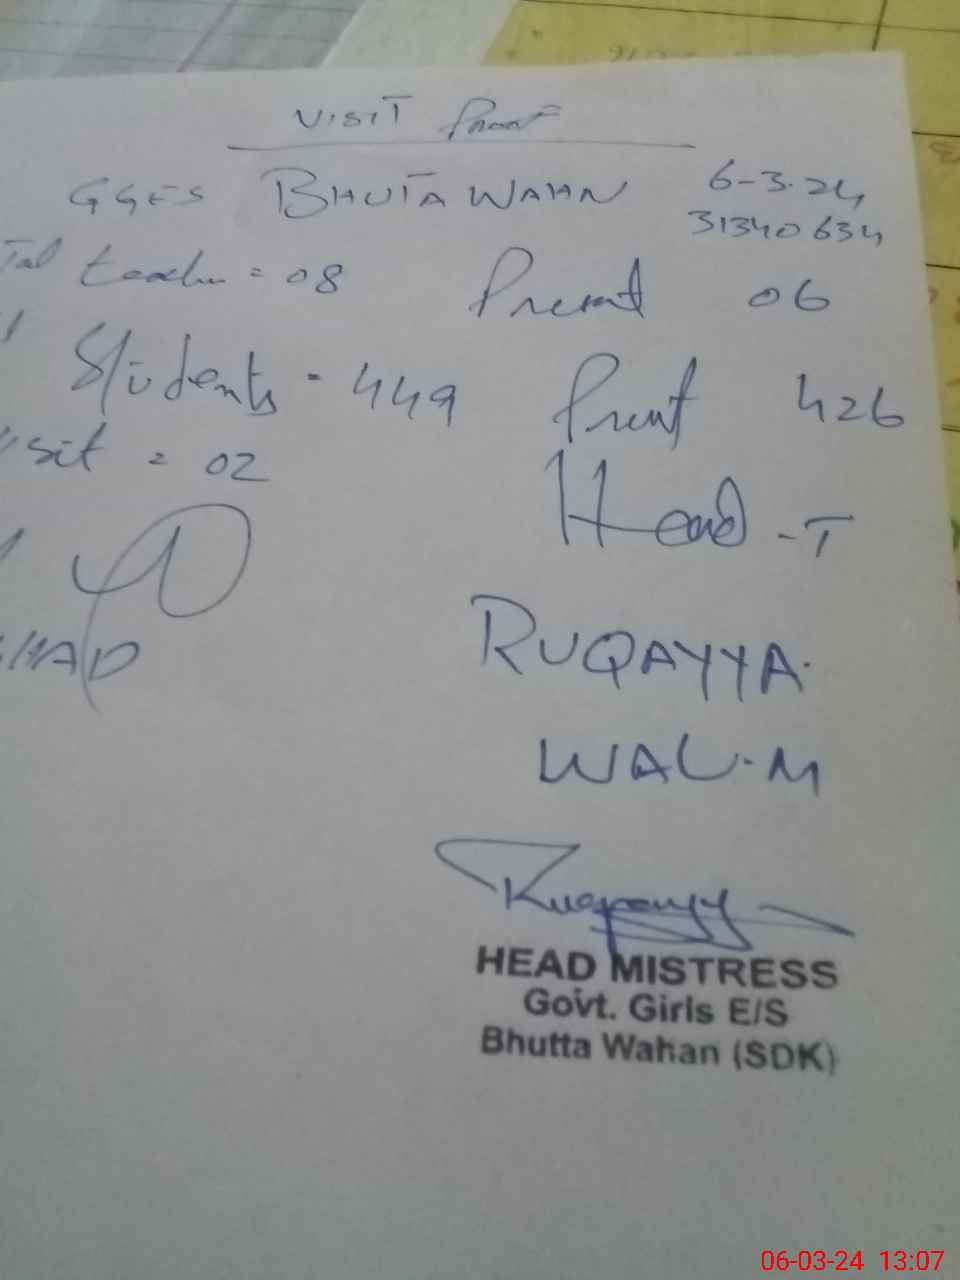 VISIT Proof
GGES BHUTA WAHN 6-3-24
31340634
teacher = 08 Present 06
Students = 449 Present 426
= 02
Head-T
RUQAYYA
WAL-M
HEAD MISTRESS
Govt. Girls E/S
Bhutta Wahan (SDK)
06-03-24 13:07